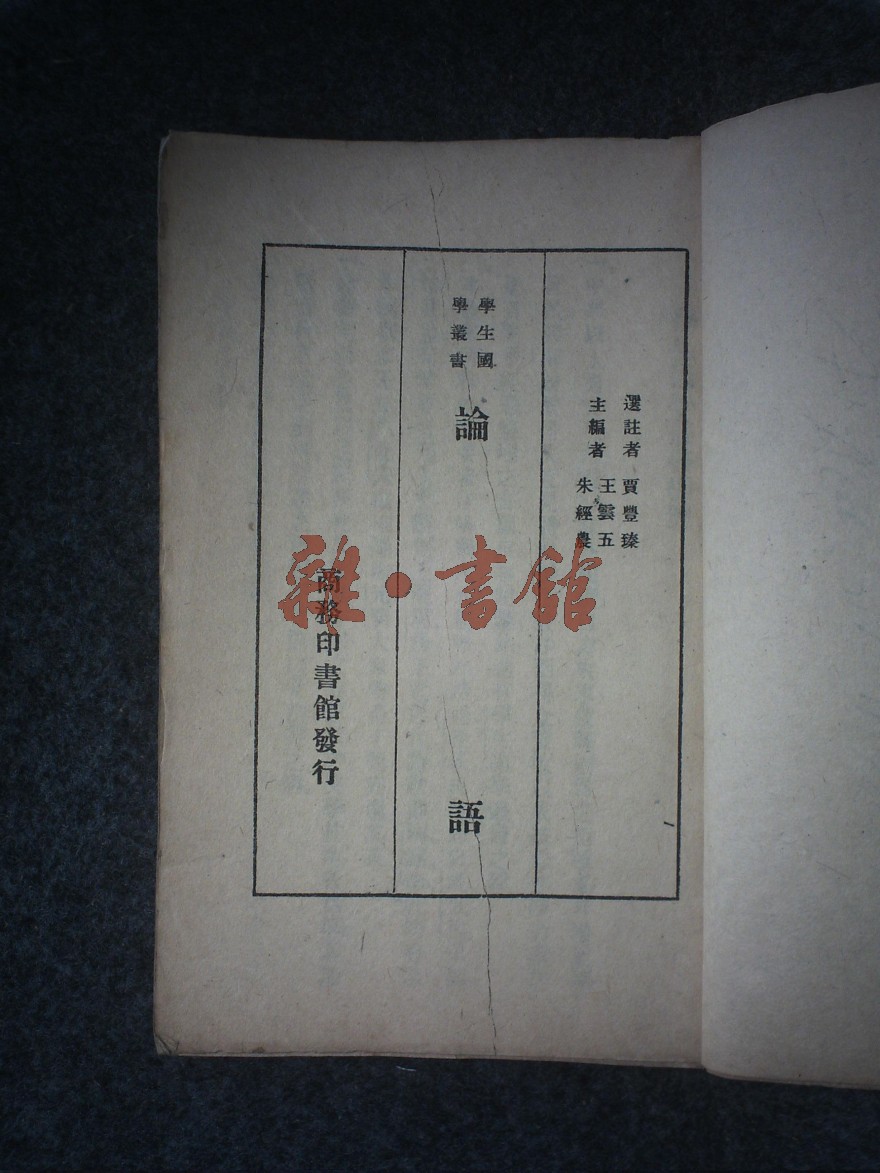 選註者 賈豐臻
主編者 王雲五
朱經農
學生國
學叢書
論語
商務印書館發行
雜·書館